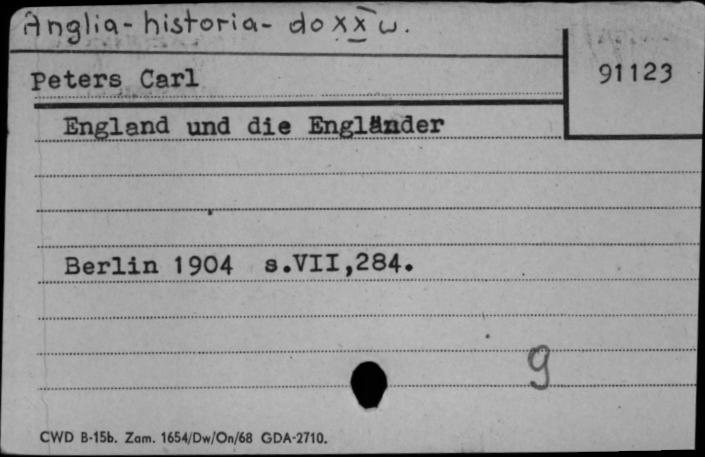 Anglia - historia - do XX w.
Peters Carl
91123
England und die Engländer
Berlin 1904 s.VII,284.
9
CWD B-15b. Zam. 1654/Dw/On/68 GDA-2710.